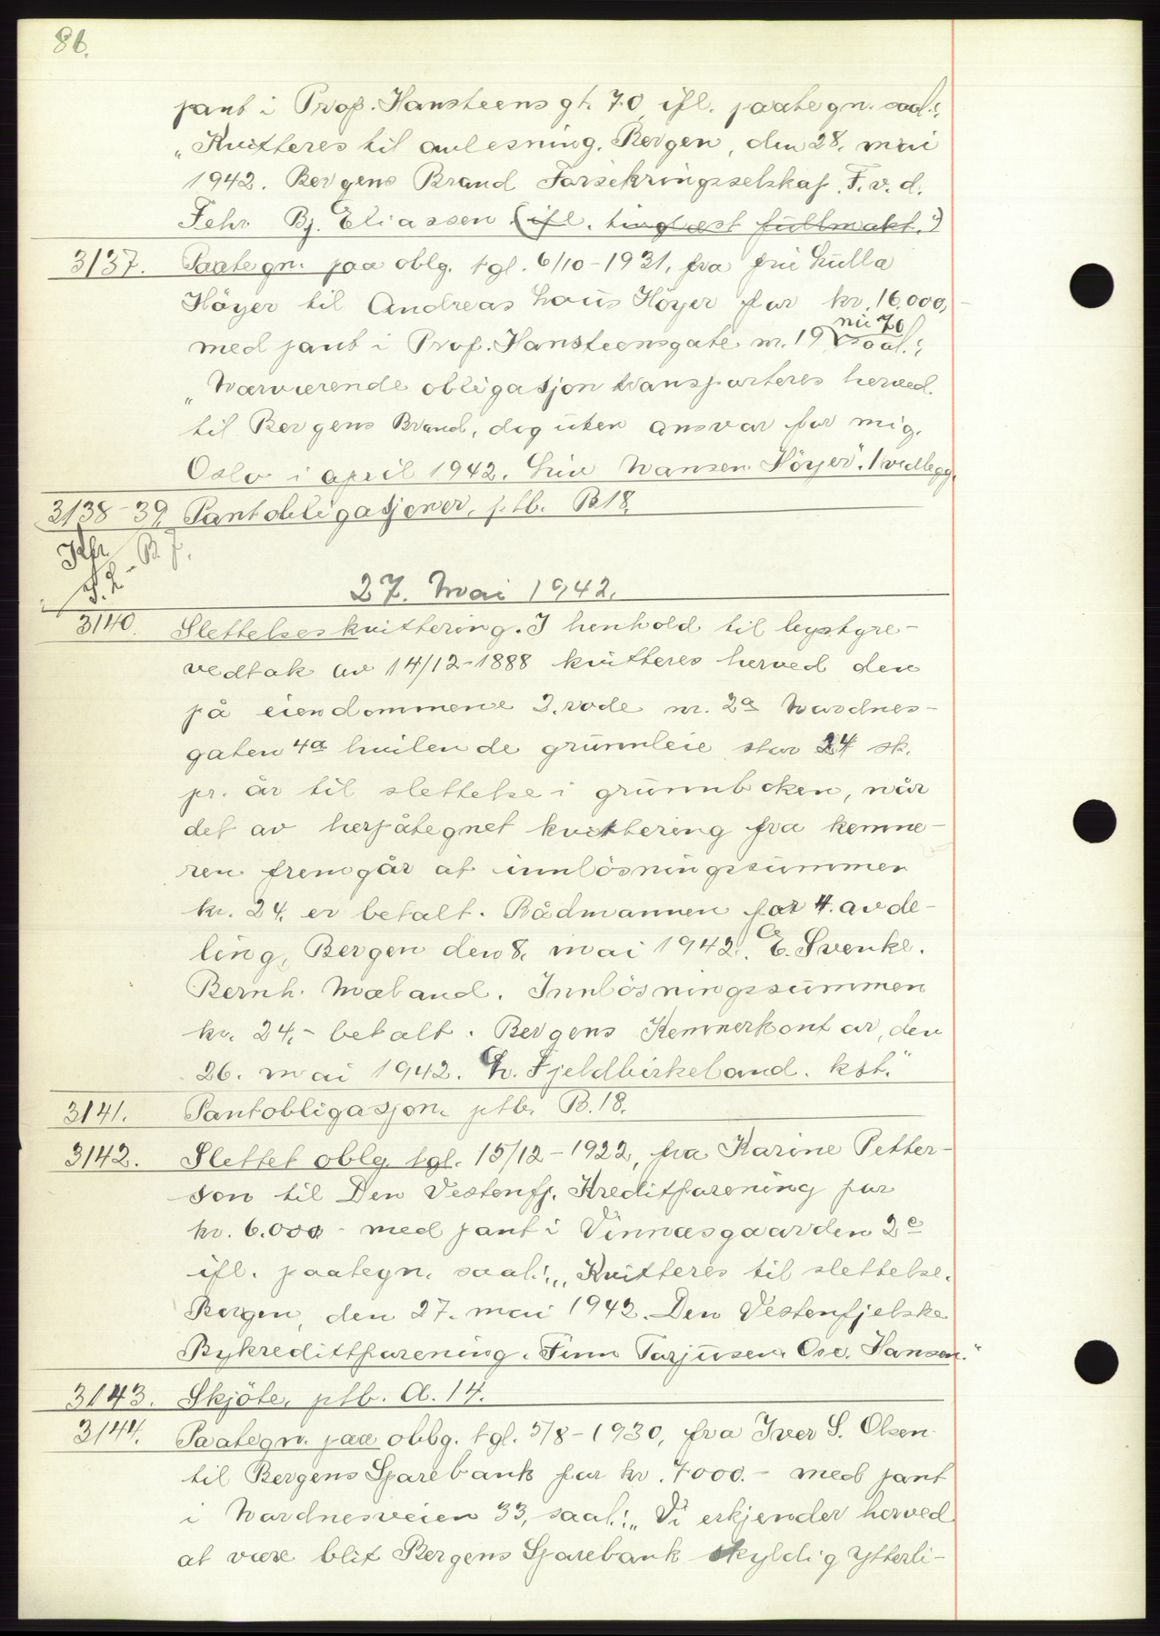 86.
pant i Prof. Hansteens gt. 70, ifl. paategn. saal.:
"Kvitteres til avlesning. Bergen, den 28. mai
1942. Bergens Brand Forsikringsselskap. F.v.d.
Fehr. Bj. Eliassen. (ifl. tinglæst fullmakt.")
3137. Paategn. paa oblg. tgl. 6/10-1931, fra fru Gulla
Höyer til Andreas Houis Höyer for kr. 16.000,-
nu 70
med pant i Prof. Hansteensgate nr. 19 saal.:
"Nærværende obligasjon transporteres herved
til Bergens Brand, dog uten ansvar for mig.
Oslo i april 1942. Nansen Höyer". 1 vedlegg.
3138-39. Pantobligasjoner, ptb. B18.
Kfr. B.J.
27. Mai 1942.
3140. Slettelseskvittering. I henhold til bystyre-
vedtak av 14/12-1888 kvitteres herved den
på eiendommene 3. rode nr. 2a Nordnes-
gaten 4a hvilende grunnleie stor 24 sk.
pr. år til slettelse i grunnboken, når
det av herpåtegnet kvittering fra kemne-
ren fremgår at innlösningssummen
kr. 24, er betalt. Rådmannen for 4. avde-
ling, Bergen den 8. mai 1942. E. Svenke.
Bernh. Mæland. Innlösningssummen
kr. 24,- betalt. Bergens Kemnerkontor, den
26. mai 1942. Chr. Fjeldbirkeland. kst."
3141. Pantobligasjon, ptb. B.18.
3142. Slettet oblg. tgl. 15/12-1922, fra Karine Petter-
son til Den Vestenfj. Kreditforening for
kr. 6.000- med pant i Vinnæsgaarden 2c
ifl. paategn. saal.: "Kvitteres til slettelse.
Bergen, den 27. mai 1942. Den Vestenfjelske
Bykredittforening. Finn Torjusen. Osc. Hansen."
3143. Skjöte, ptb. A. 14.
3144. Paategn. paa obbg. tgl. 5/8-1930, fra Iver S. Olsen
til Bergens Sparebank for kr. 7000.- med pant
i Nordnesveien 33, saal.: "Vi erkjender herved
at være blit Bergens Sparebank skyldig ytterli-